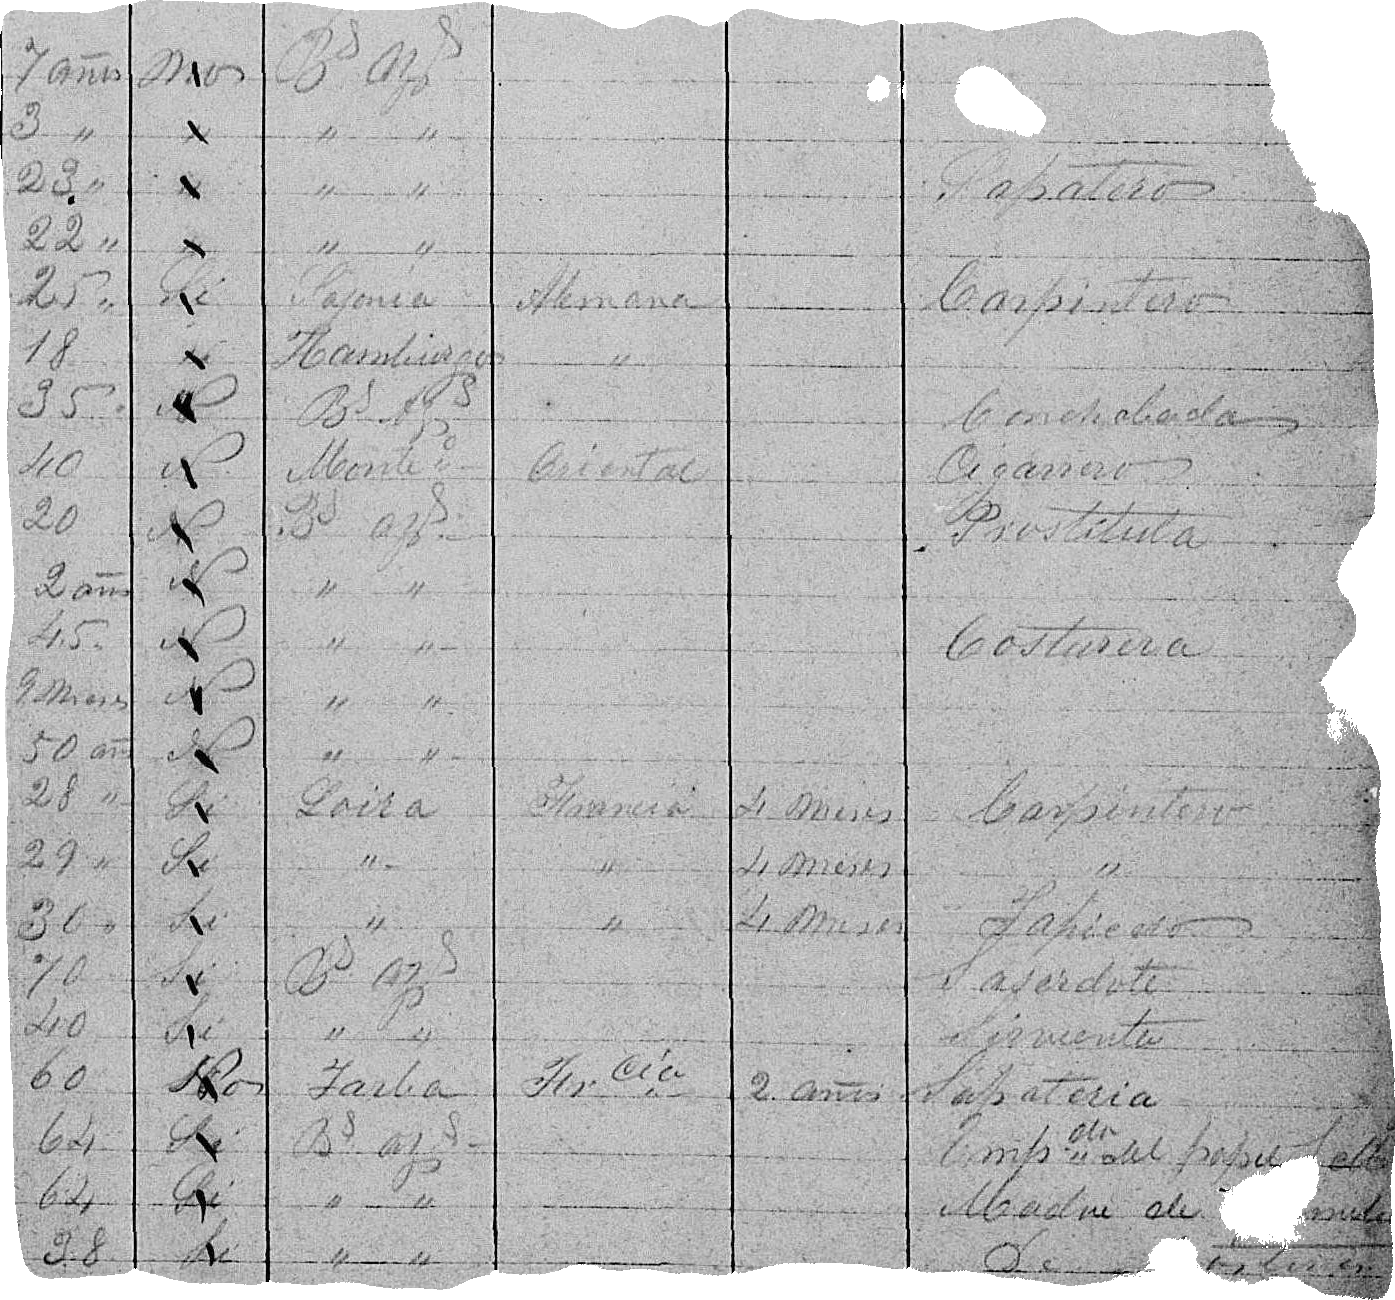 7 años Nos Bs Ays
3 " " "
23 " " " Sapatero
22 " " " "
25 " Si Sajonia Alemana Carpintero
18 Si Hamburgo "
35 N Bs Ays Conchabada
40 N Monteo Oriental Cigarrero
20 N Bs Ays Prostituta
2 años N " "
45 N " " Costurera
9 Meses N " "
50 añ N " "
28 " Si Loira Francia 4 Meses Carpintero
29 " Si " " 4 Meses "
30 " Si " " 4 Meses
70 Si Bs Ays Saserdote
40 Si " " Sirvienta
60 Nos Tarba Fr cia 2 años Sapateria
64 Si Bs Ays Emp do del papel
62 Si " " Madre de
38 Si " " De